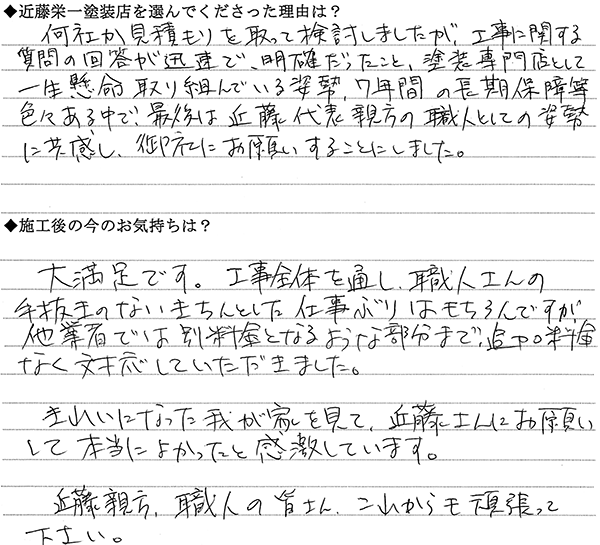 ◆近藤栄一塗装店を選んでくださった理由は？
何社か見積もりを取って検討しましたが、工事に関する
質問の回答が迅速で、明確だったこと、塗装専門店として
一生懸命取り組んでいる姿勢、7年間の長期保障等
色々ある中で、最後は近藤代表親方の職人としての姿勢
に共感し、御社にお願いすることにしました。
◆施工後の今のお気持ちは？
大満足です。工事全体を通し、職人さんの
手抜きのないきちんとした仕事ぶりはもちろんですが、
他業者では別料金となるような部分まで、追加料金
なく対応していただきました。
きれいになった我が家を見て、近藤さんにお願い
して本当によかったと感激しています。
近藤親方、職人の皆さん、これからも頑張って
下さい。